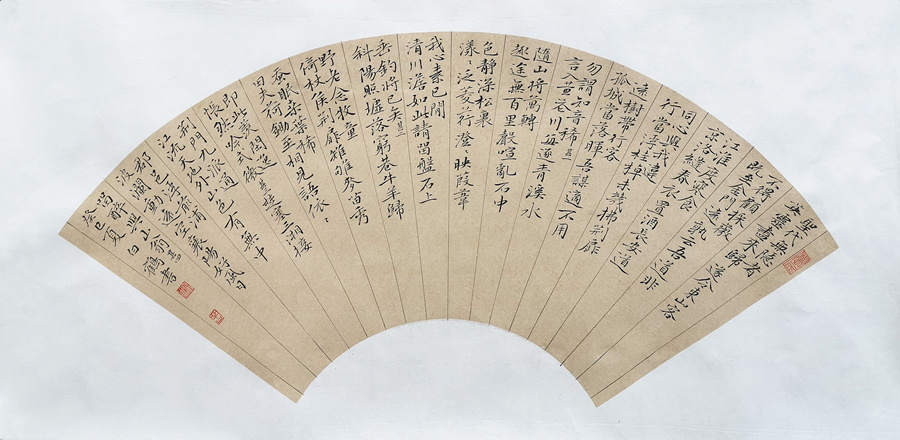 聖代無隱者
英靈盡來歸遂令東山客
不得顧採薇
既至金門遠孰云吾道非
江淮度寒食
京洛縫春衣置酒長安道
同心與我違
行當浮桂棹未幾拂荊扉
遠樹帶行客
孤城當落暉吾謀適不用
勿謂知音稀
言入黃花川每逐青溪水
隨山將萬轉
趣途無百里聲喧亂石中
色靜深松裏
漾〻泛菱荇澄〻映葭葦
我心素已閒
清川澹如此請留盤石上
垂釣將已矣
斜陽照墟落窮巷牛羊歸
野老念牧童
倚杖候荊扉雉雊麥苗秀
蠶眠桑葉稀
田夫荷鋤至相見語依〻
即此羨閒逸
悵然吟式微楚塞三湘接
荊門九派通
江流天地外山色有無中
郡邑浮前浦
波瀾動遠空襄陽好風日
留醉與山翁
癸巳夏白山鶴書